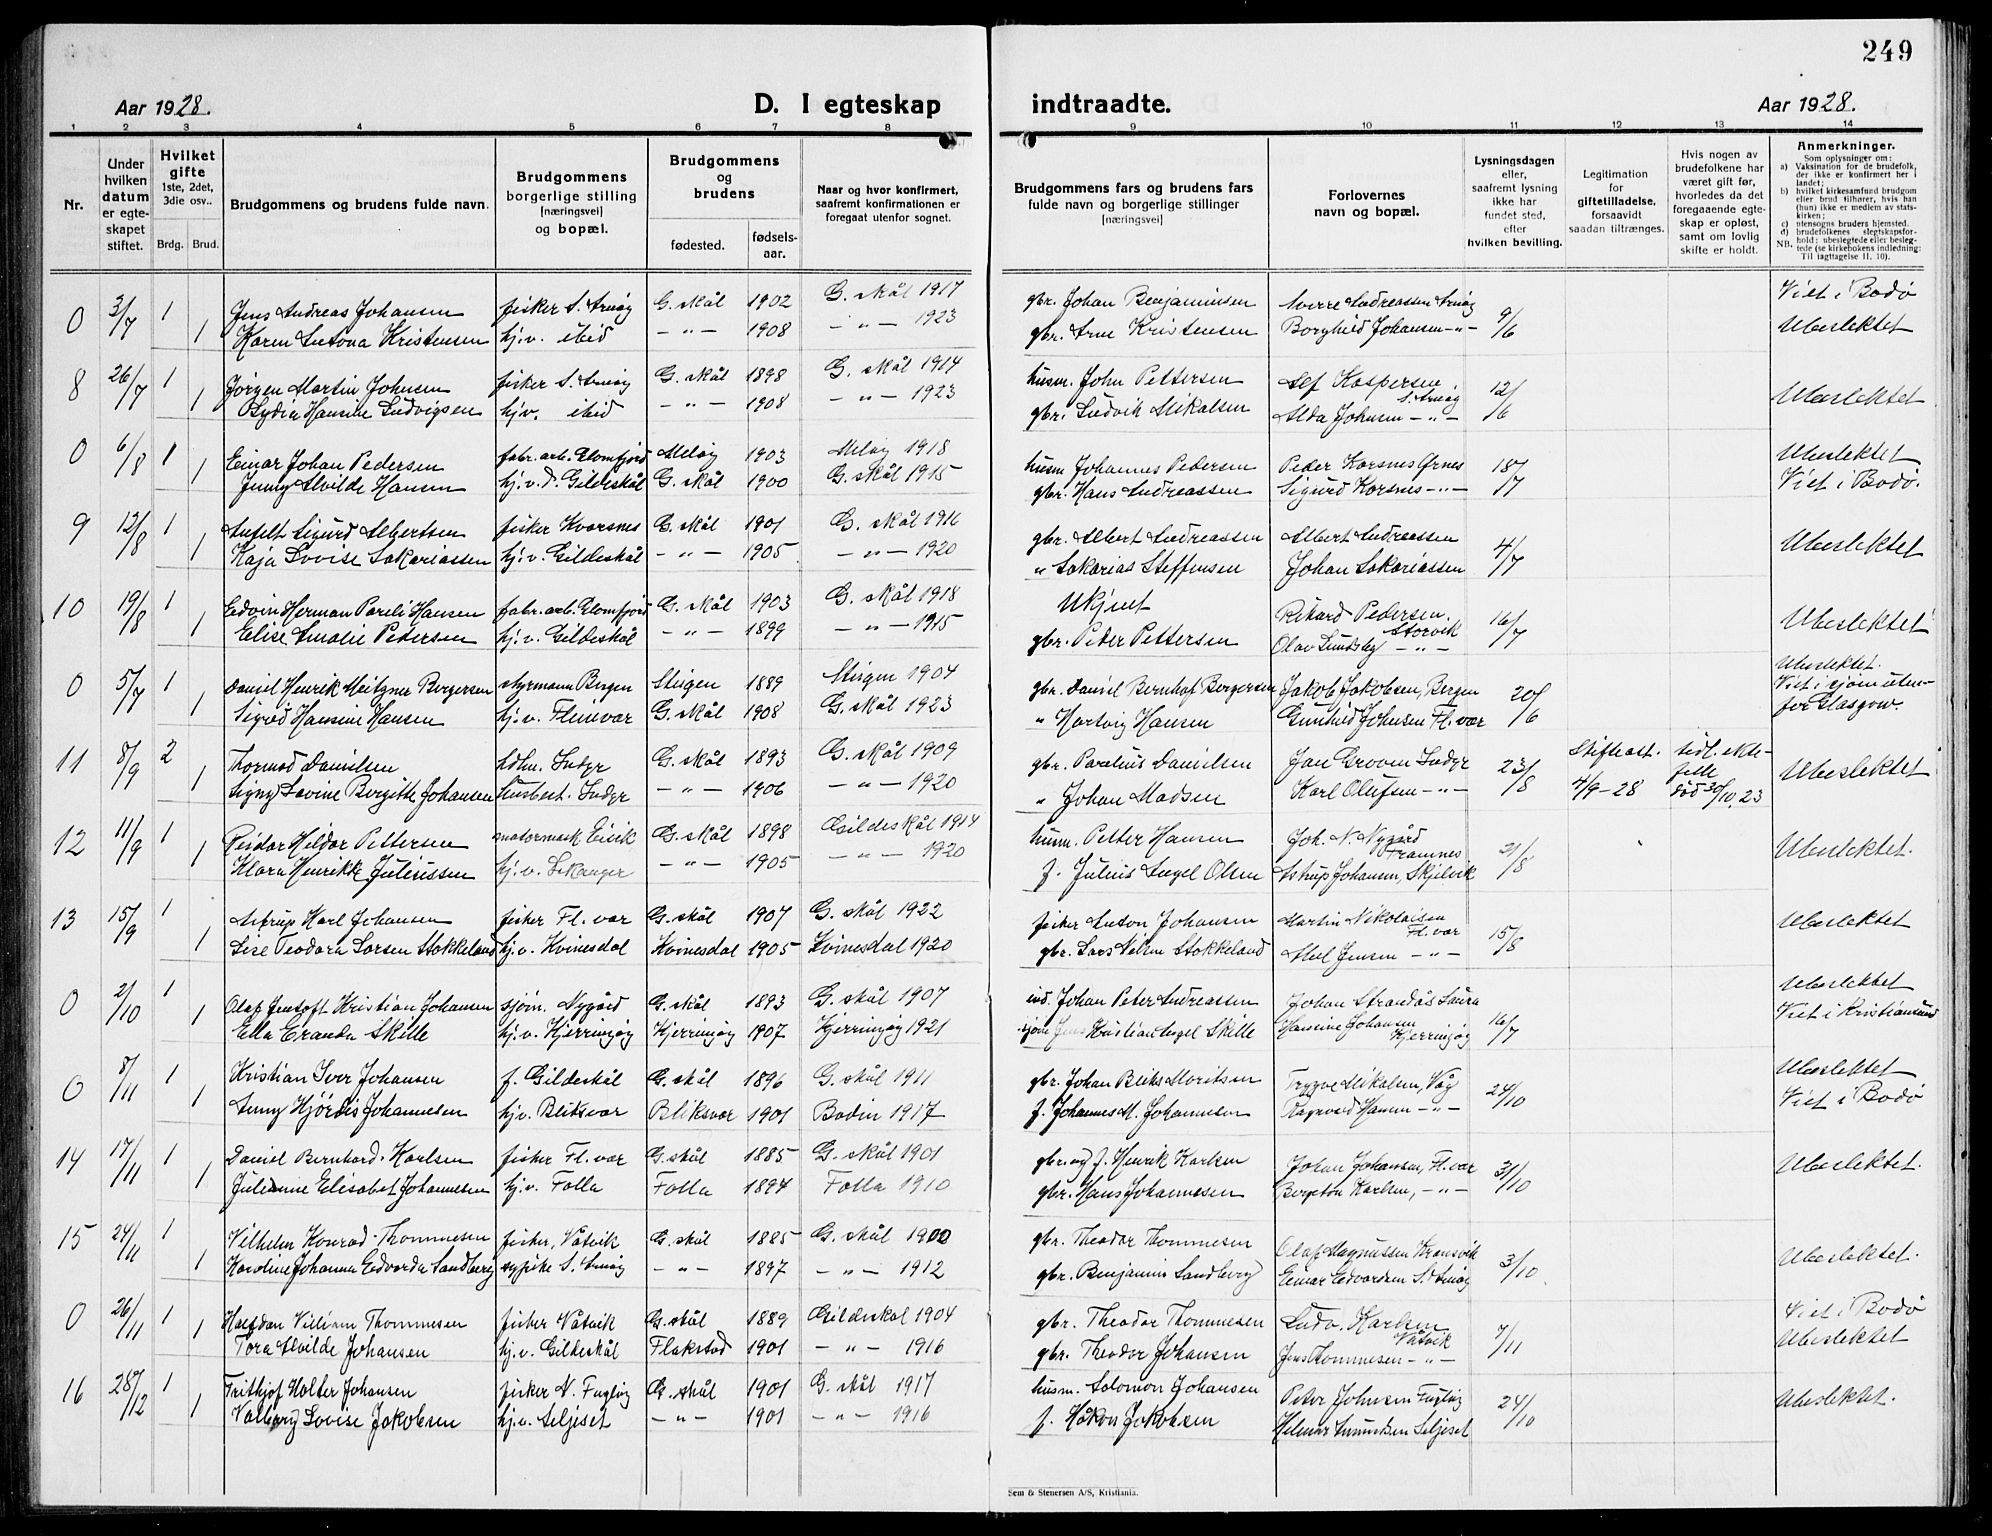 249
Aar 1928.
D. I egteskap
indtraadte.
Aar 1928.
1 2 3 4 5 6 7 8 9 10 11 12 13 14
Nr.
Under hvilken datum er egteskapet stiftet.
Hvilket gifte 1ste, 2det, 3die osv..
Brdg. Brud.
Brudgommens og brudens fulde navn.
Brudgommens borgerlige stilling [næringsvei] og bopæl.
Brudgommens og brudens
fødested.
fødsels-aar.
Naar og hvor konfirmert, saafremt konfirmationen er foregaat utenfor sognet.
Brudgommens fars og brudens fars fulde navn og borgerlige stillinger [næringsvei]
Forlovernes navn og bopæl.
Lysningsdagen eller, saafremt lysning ikke har fundet sted, efter hvilken bevilling.
Legitimation for giftetilladelse, forsaavidt saadan tiltrænges.
Hvis nogen av brudefolkene har været gift før, hvorledes da det foregaaende egteskap er opløst, samt om lovlig skifte er holdt.
Anmerkninger.
Som oplysninger om:
a) Vaksination for de brudefolk, der ikke er konfirmert her i landet;
b) hvilket kirkesamfund brudgom eller brud tilhører, hvis han (hun) ikke er medlem av statskirken;
c) utensogns bruders hjemsted.
d) brudefolkenes slegtskapsforhold: ubeslegtede eller beslegtede (se kirkebokens indledning: NB. Til iagttagelse II. 10).
0 3/7 1 Jens Andreas Johansen fisker S. Arnøy G. skål 1902 G. skål 1917 gbr. Johan Benjaminsen Sverre Andreassen Arnøy 9/6 Viet i Bodø
1 Karen Antona Kristensen hj.v. ibid -"- 1908 -"- 1923 gbr. Arne Kristensen Borghild Johansen -"- Ubeslektet
8 26/7 1 Jörgen Martin Johnsen fisker S. Arnøy G. skål 1898 G. skål 1914 husm. John Pettersen Alf Kaspersen S. Arnøy 12/6 Ubeslektet
1 Lydia Hansine Ludvigsen hj.v. ibid -"- 1908 -"- 1923 gbr. Ludvik Mikalsen Alda Johnsen -"-
0 6/8 1 Einar Johan Pedersen fabr. arb. Glomfjord Meløy 1903 Meløy 1918 husm. Johannes Pedersen Peder Korsnes Ørnes 18/7 Ubeslektet
1 Jenny Alvilde Hansen hj.v. d. Gildeskål G. skål 1900 G. skål 1915 gbr. Hans Andreassen Sigurd Korsnes -"- Viet i Bodø.
9 12/8 1 Anfelt Sigurd Albertsen fisker Kvarsnes G. skål 1901 G. skål 1916 gbr. Albert Andreassen Albert Andreassen 4/7 Ubeslektet
1 Kaja Lovise Sakariassen hj.v. Gildeskål -"- 1905 -"- 1920 " Sakarias Steffensen Johan Sakariassen
10 19/8 1 Edvin Herman Pareli Hansen fabr. arb. Glomfjord G. skål 1903 G. skål 1918 Ukjent Rikard Pedersen. Storvik 16/7 Ubeslektet
1 Elise Amalie Pedersen hj.v. Gildeskål -"- 1899 -"- 1915 gbr. Peder Pettersen Olav Lundsby -"-
0 5/7 1 Daniel Henrik Meitzner Bergersen styrmann Bergen Steigen 1889 Steigen 1904 gbr. Daniel Bernhof Bergersen Jakob Jakobsen, Bergen 20/6 Ubeslektet. Viet i sjøm. uten-
1 Sigrid Hansine Hansen hj.v. Fleinvær G. skål 1908 G. skål 1923 " Hartvig Hansen Gunhild Johnsen Fl. vær for Glasgow.
11 8/9 2 Thormod Danielsen hdlm. Indyr G. skål 1893 G. skål 1909 gbr. Parelius Danielsen Jan Groven Indyr 23/8 Skifteatt. tidl. ekte- Ubeslektet
1 Signy Lovine Birgitte Johansen husbest. Indyr -"- 1906 -"- 1920 " Johan Madsen Karl Olufsen -"- 4/9-28 felle død 30/10.23
12 11/9 1 Reidar Hildor Pettersen motormask Eivik G. skål 1898 Gildeskål 1914 husm. Petter Hansen Joh. N. Nygård Framnes 21/8 Ubeslektet.
1 Klara Henrikke Juliussen hj.v. Lekanger -"- 1905 -"- 1920 f. Julius Angel Olsen Astrup Johansen, Skjelvik
13 15/9 1 Astrup Karl Johansen fisker Fl. vær G. skål 1907 G. skål 1922 fisker Anton Johansen Martin Nikolaisen Fl. vær 15/8 Ubeslektet
1 Lise Teodora Larsen Stokkeland hj.v. Kvinesdal Kvinesdal 1905 Kvinesdal 1920 gbr. Lars Nilsen Stokkeland Abel Jensen -"-
0 2/10 1 Olaf Jentoft Kristian Johansen sjøm. Nygård G. skål 1893 G. skål 1907 ind. Johan Peter Andreassen Johan Strandås Saura 16/7 Ubeslektet
1 Ella Eranda Skille hj.v. Kjerringøy Kjerringøy 1907 Kjerringøy 1921 sjøm Jens Kristian Angel Skille Hansine Johansen Kjerringøy Viet i Kristiansund
0 8/11 1 Kristian Iver Johansen f. Gildeskål G. skål 1896 G. skål 1911 gbr. Johan Bliks Moritsen Trygve Mikalsen, Våg 24/10 Ubeslektet
1 Anny Hjördis Johannesen hj.v. Bliksvær Bliksvær 1901 Bodin 1917 f. Johannes M. Johannesen Ragnvard Hansen -"- Viet i Bodø
14 17/11 1 Daniel Bernhard Karlsen fisker Fl. vær G. skål 1885 G. skål 1901 gbr. og f. Henrik Karlsen Johan Johansen, Fl. vær 31/10 Ubeslektet.
1 Julianne Elisabet Johannesen hj.v. Folla Folla 1894 Folla 1910 gbr. Hans Johannesen Bergeton Karlsen, -"-
15 24/11 1 Vilhelm Konrad Thommesen fisker, Våtvik G. skål 1885 G. skål 1900 gbr. Theodor Thommesen Olaf Magnussen Kransvik 3/10 Ubeslektet.
1 Karoline Johanna Edvarda Sandberg sypike S. Arnøy -"- 1897 -"- 1912 gbr. Benjamin Sandberg Einar Edvardsen S. Arnøy
0 26/11 1 Halfdan Villiam Thommesen fisker Våtvik G. skål 1889 Gildeskål 1904 gbr. Theodor Thommesen Ludv. Karlsen Våtvik 7/11 Viet i Bodø
1 Tora Alvilde Johansen hj.v. Gildeskål Flakstad 1901 -"- 1916 gbr. Theodor Johansen Jens Thommesen -"- Ubeslektet
16 28/12 1 Frithjof Holter Johansen fisker N. Fugløy G. skål 1901 G. skål 1917 husm. Salomon Johansen Peter Johnsen Fugløy 24/10 Ubeslektet.
1 Valborg Lovise Jakobsen hj.v. Seljeset -"- 1901 -"- 1916 f. Håkon Jakobsen Helmer Amundsen Seljeset
Sem & Stenersen A/S, Kristiania.